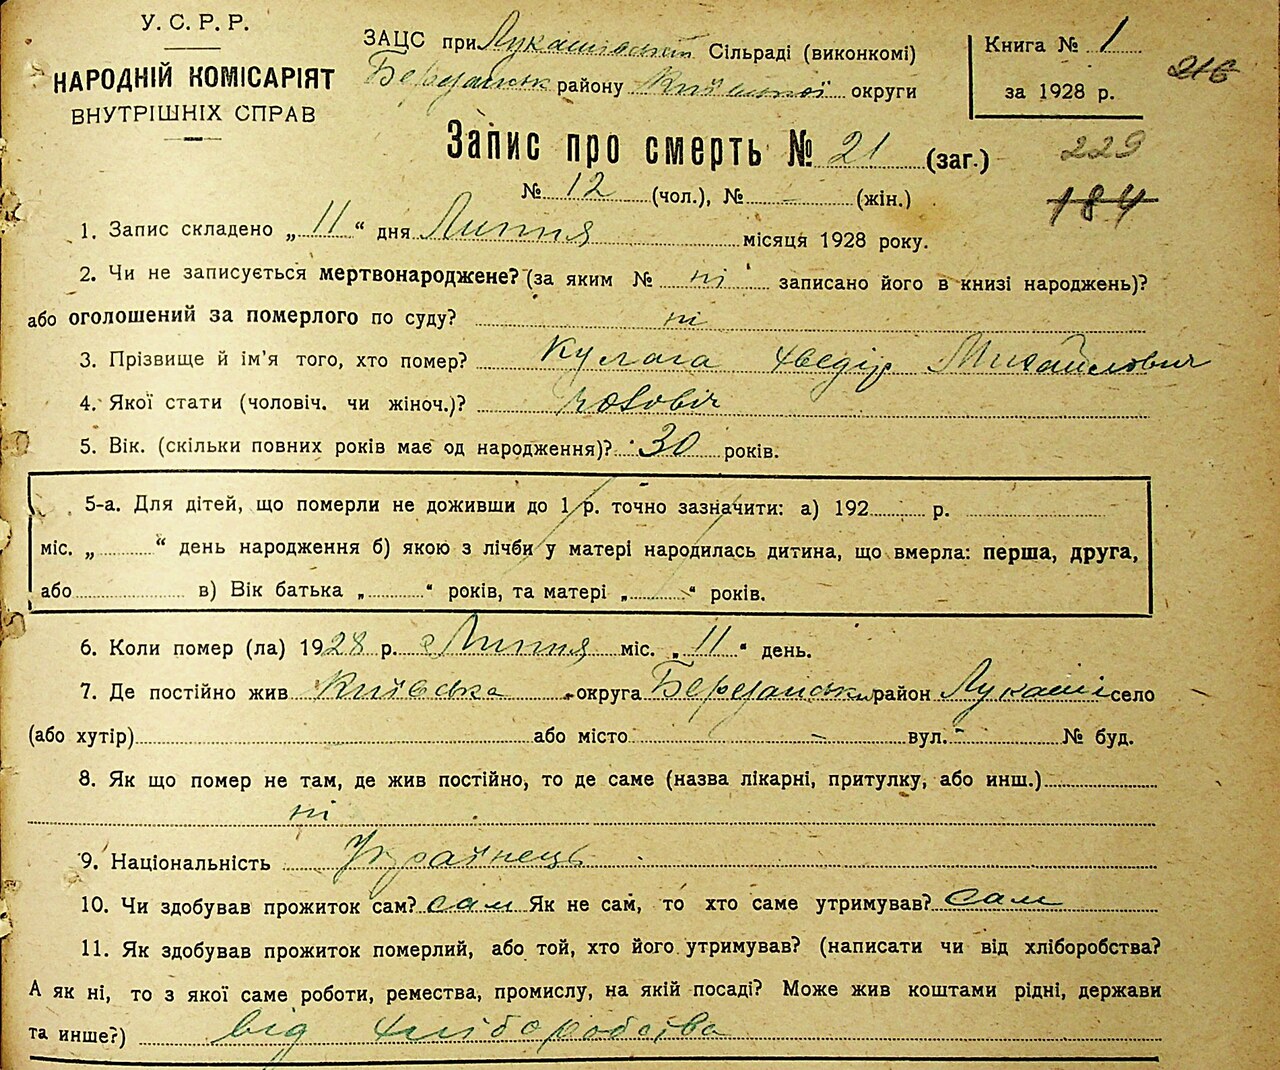 У. С. Р. Р.
НАРОДНІЙ КОМІСАРІЯТ
ВНУТРІШНІХ СПРАВ
ЗАЦС при Лукашівській Сільраді (виконкомі)
Березанськ району Київської округи
Книга № 1
за 1928 р.
216
Запис про смерть № 21 (заг.)
229
№ 12 (чол.), № - (жін.)
184
1. Запис складено „11“ дня Липня місяця 1928 року.
2. Чи не записується мертвонароджене? (за яким № ні записано його в книзі народжень)?
або оголошений за померлого по суду? ні
3. Прізвище й ім’я того, хто помер? Кулага Хведір Михайлович
4. Якої стати (чоловіч. чи жіноч.)? чоловіч
5. Вік. (скільки повних років має од народження)? 30 років.
5-а. Для дітей, що померли не доживши до 1 р. точно зазначити: а) 192 р.
міс. „ “ день народження б) якою з лічби у матері народилась дитина, що вмерла: перша, друга,
або в) Вік батька „ “ років, та матері „ “ років.
6. Коли помер (ла) 1928 р. Липня міс. „11“ день.
7. Де постійно жив Київська округа Березанськ район Лукаші село
(або хутір) або місто – вул. - № буд.
8. Як що помер не там, де жив постійно, то де саме (назва лікарні, притулку, або инш.)
ні
9. Національність Українець
10. Чи здобував прожиток сам? сам Як не сам, то хто саме утримував? сам
11. Як здобував прожиток померлий, або той, хто його утримував? (написати чи від хліборобства?
А як ні, то з якої саме роботи, ремества, промислу, на якій посаді? Може жив коштами рідні, держави
та инше?) від хліборобства